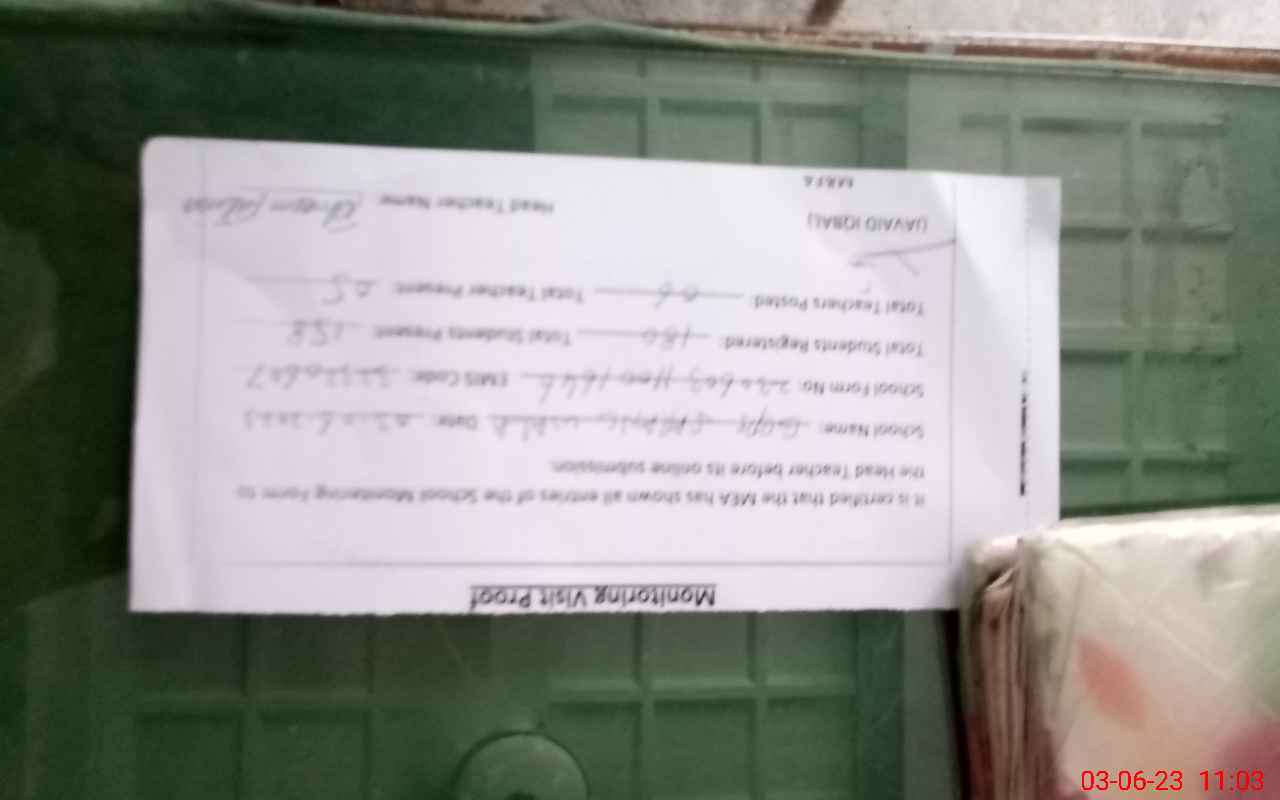 Monitoring Visit Proof
It is certified that the MEA has shown all entries of the School Monitoring Form to
the Head Teacher before its online submission.
School Name: Date: 03-06-2023
School Form No: EMIS Code:
Total Students Registered: 180 Total Students Present: 158
Total Teachers Posted: 06 Total Teacher Present: 05
(JAVAID IQBAL) Head Teacher Name:
03-06-23 11:03